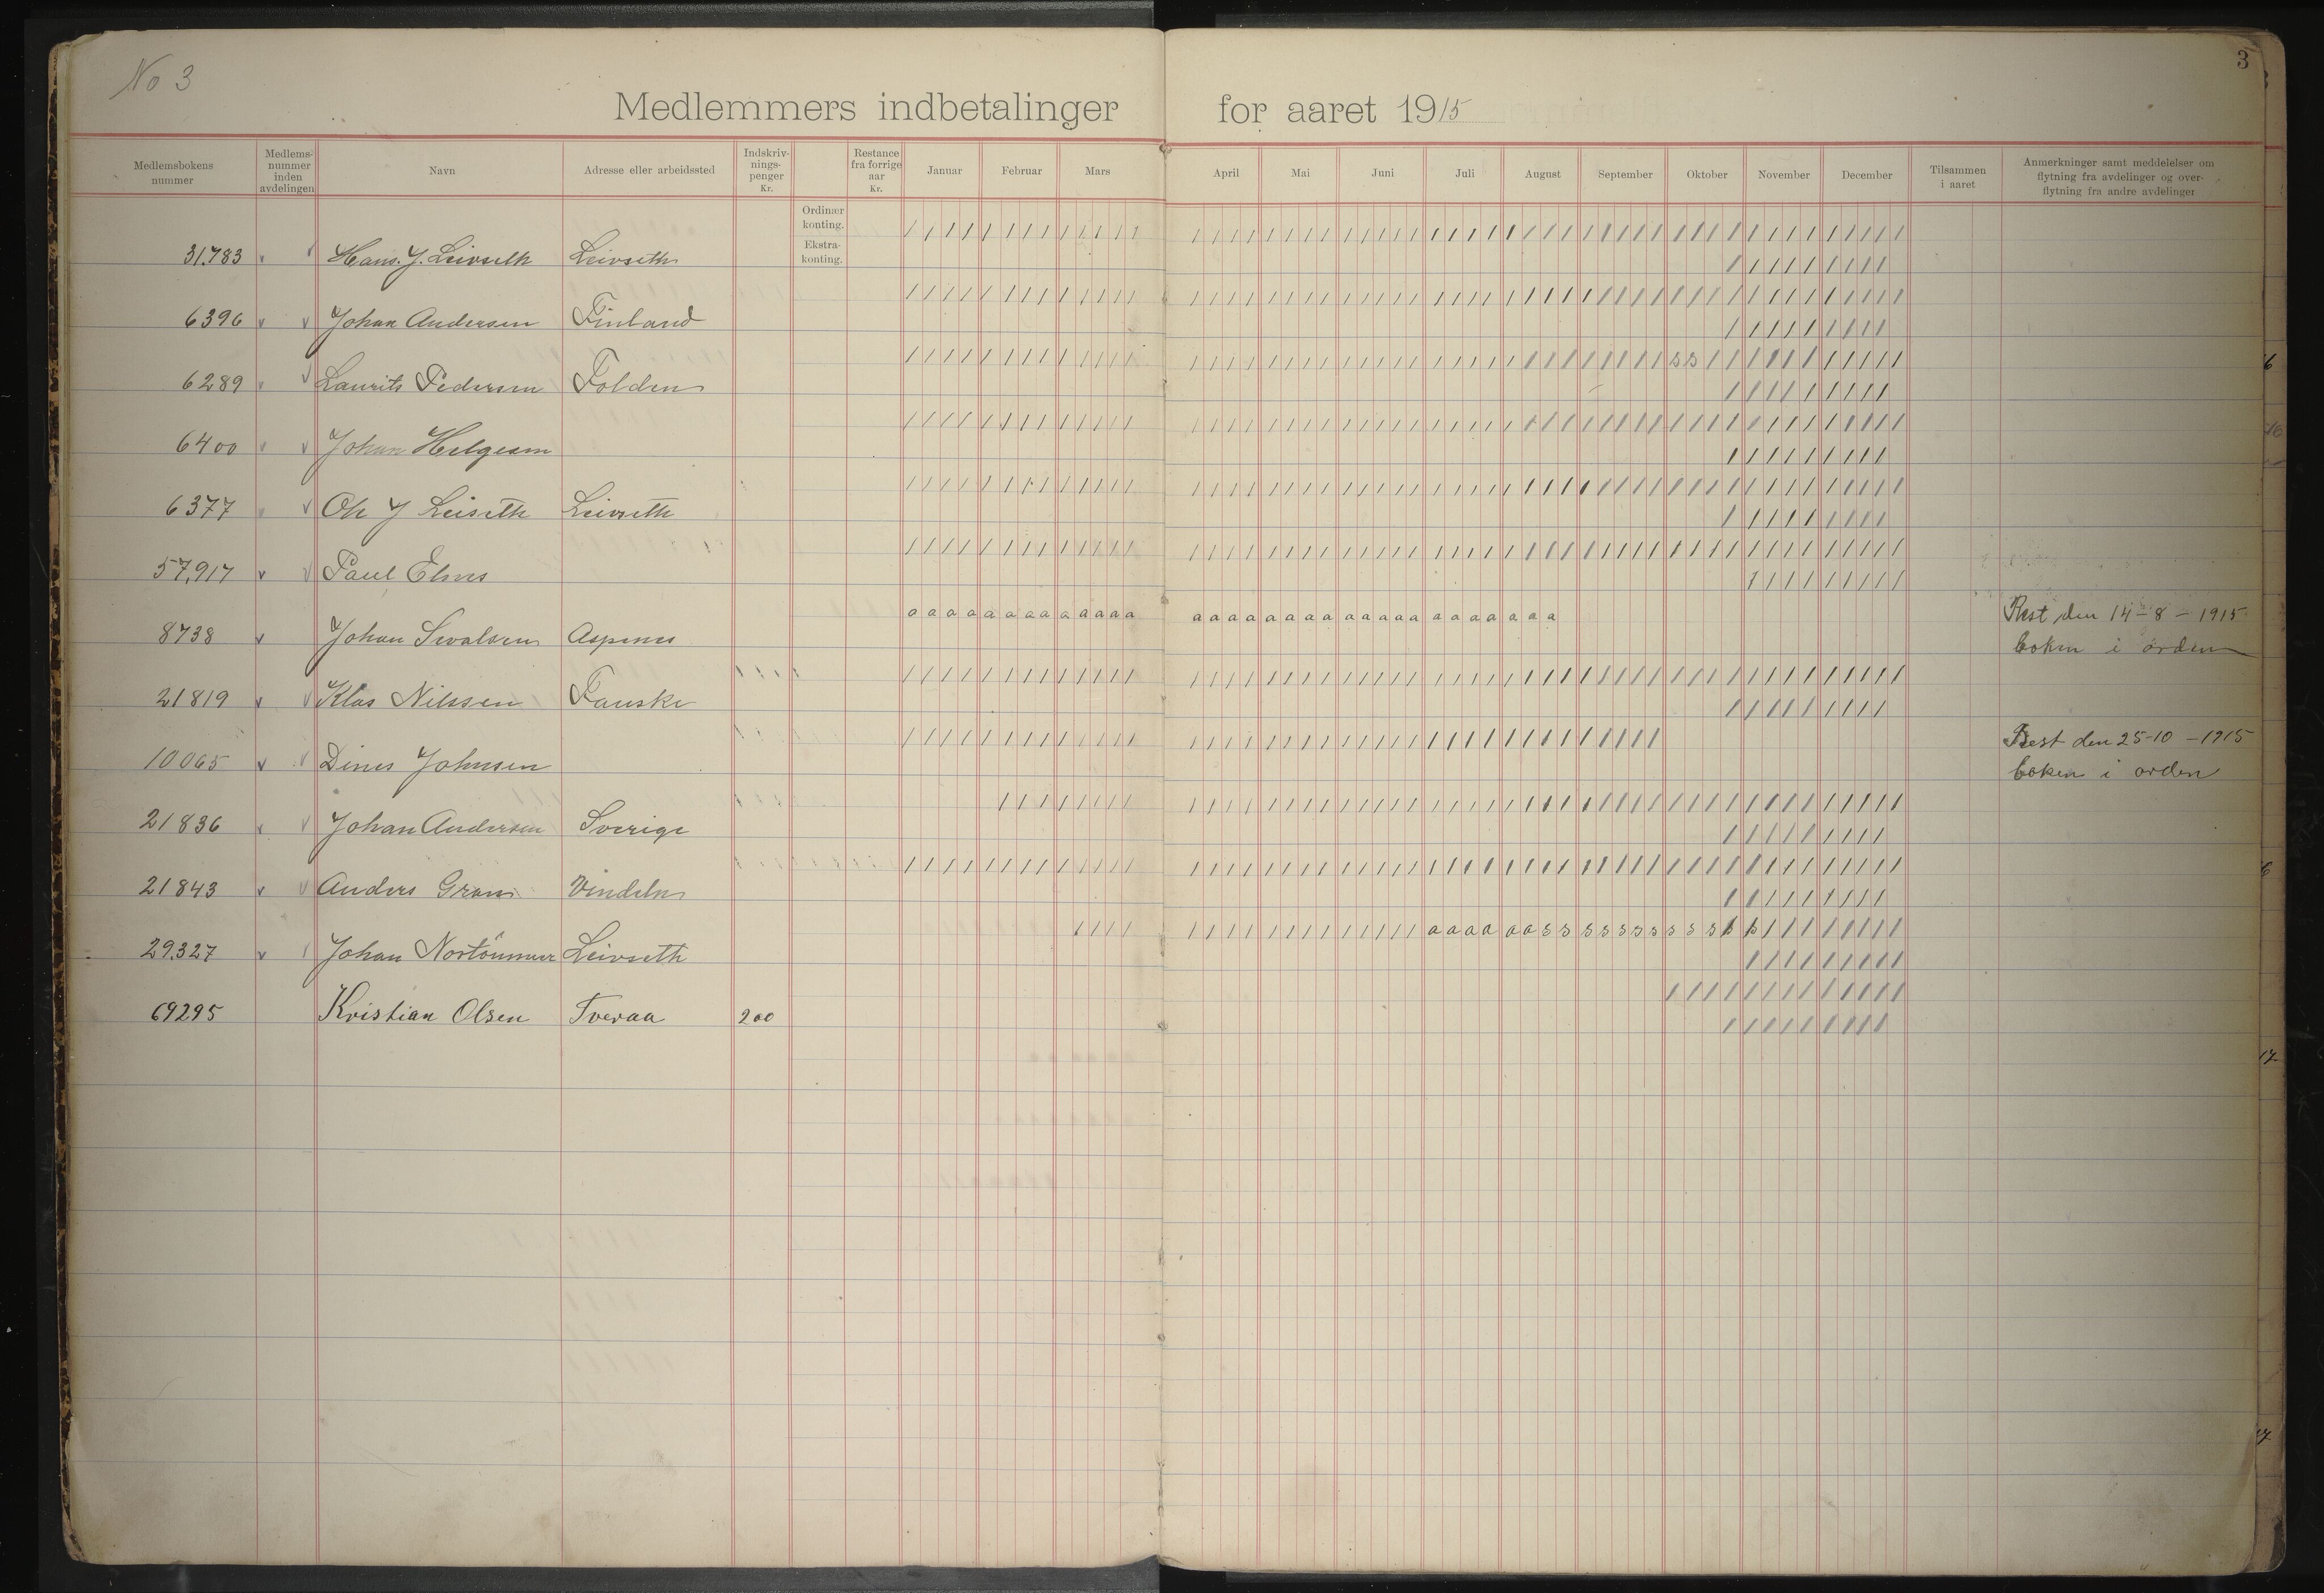 No 3
3
Medlemmers indbetalinger for aaret 1915
Medlemsbokens nummer
Medlems-nummer inden avdelingen
Navn
Adresse eller arbeidssted
Indskriv-nings-penger Kr.
Restance fra forrige aar Kr.
Januar Februar Mars April Mai Juni Juli August September Oktober November December
Tilsammen i aaret
Anmerkninger samt meddelelser om flytning fra avdelinger og over-flytning fra andre avdelinger
Ordinær konting.
Ekstra-konting.
31,783 v v Hans. J. Leivseth Leivseth
6396 v v Johan Andersen Finland
6289 v v Laurits Pedersen Folden
s s
6400 v v Johan Helgesen
6377 v v Ole J Leiseth Leivseth
57,917 v v Paul Elvnes
a a a a a a a a a a a a a a a a a a a a a a a a a a a a a a a a
8738 v Johan Sivalsen Aspenes
Rest den 14-8-1915
boken i orden
21819 v v Klas Nilssen Fauske
10065 v v Dines Johnsen
Rest den 25-10-1915
boken i orden
21836 v v Johan Andersen Sverige
21843 v v Anders Gran Vindeln
a a a a a a s s s s s s s s s s s s
29,327 v v Johan Leivseth
69295 Kristian Olsen Tveraa 200